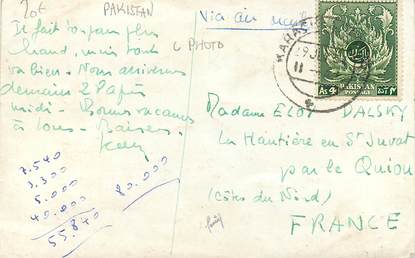 20f
PAKISTAN
C PHOTO
Via air mail
Il fait de plus en plus
chaud, mais tout
va bien - Nous arrivons
demain 2 l'après
midi - Bonnes vacances
à tous - Baisers -
7.540
3.300
5.000
40.000
55.840
80.000
KARACHI
As 4
PAKISTAN
POSTAGE
Madame ELOY DALSKY
La Hautière en St Juvat
par le Quiou
(Côtes du Nord)
FRANCE